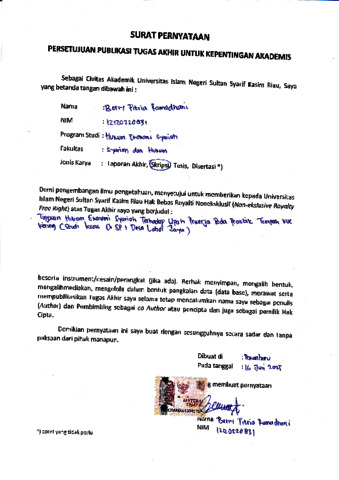 SURAT PERNYATAAN
PERSETUJUAN PUBLIKASI TUGAS AKHIR UNTUK KEPENTINGAN AKADEMIS
Sebagai Civitas Akademik Universitas Islam Negeri Sultan Syarif Kasim Riau, Saya
yang betanda tangan dibawah ini :
Nama : Berry Fitria Ramadhani
NIM : 12120220831
Program Studi : Hukum Ekonomi Syariah
Fakultas : Syariah dan Hukum
Jenis Karya : Laporan Akhir, Skripsi, Tesis, Disertasi *)
Demi pengembangan ilmu pengetahuan, menyetujui untuk memberikan kepada Universitas
Islam Negeri Sultan Syarif Kasim Riau Hak Bebas Royalti Noneksklusif (Non-ekslusive Royalty
Free Right) atas Tugas Akhir saya yang berjudul :
Tinjauan Hukum Ekonomi Syariah Terhadap Upah Pekerja Pada
(Studi Kasus Di Desa
beserta instrumen/desain/perangkat (jika ada). Berhak menyimpan, mengalih bentuk,
mengalihmediakan, mengelola dalam bentuk pangkalan data (data base), merawat serta
mempublikasikan Tugas Akhir saya selama tetap mencantumkan nama saya sebagai penulis
(Author) dan Pembimbing sebagai co Author atau pencipta dan juga sebagai pemilik Hak
Cipta.
Demikian pernyataan ini saya buat dengan sesungguhnya secara sadar dan tanpa
paksaan dari pihak manapun.
Dibuat di : Pekanbaru
Pada tanggal : 16 Juni 2025
g membuat pernyataan
METERAI
TEMPEL
Nama Berry Fitria Ramadhani
NIM 12120220831
*) coret yang tidak perlu